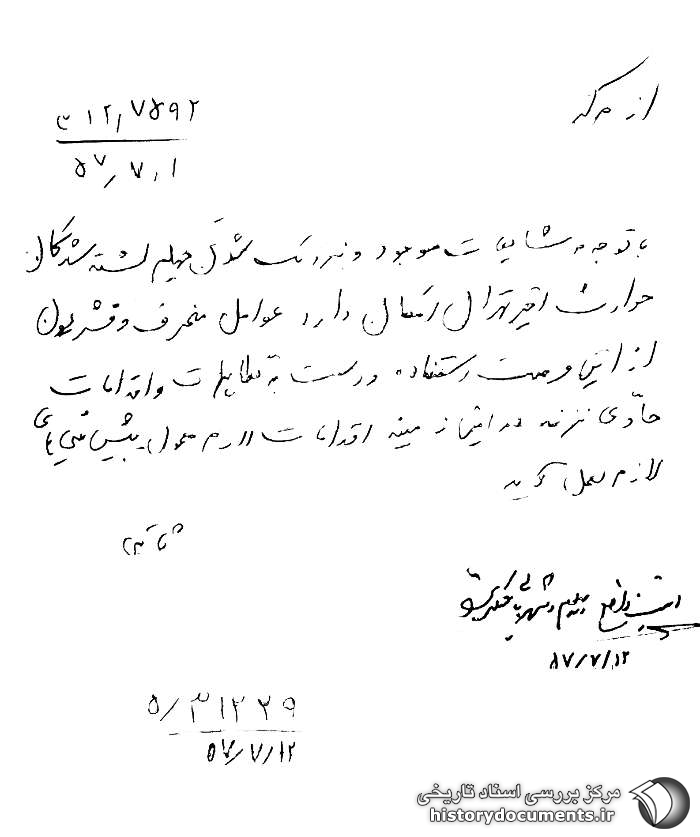 از مرکز
۳۱۲/۷۵۹۲
۵۷/۷/۱
با توجه به شایعات موجود و نزدیک شدن چهلم کشته شدگان
حوادث اخیر تهران احتمال دارد عوامل منحرف و قشریون
از این فرصت استفاده و دست به تظاهرات و اقدامات
حادی بزنند در این زمینه اقدامات لازم معمول پیش‌بینی‌های
لازم بعمل آورید
ثابتی
۵۷/۷/۱۲
۵/۳۱۲۲۹
۵۷/۷/۱۲
مرکز بررسی اسناد تاریخی
historydocuments.ir